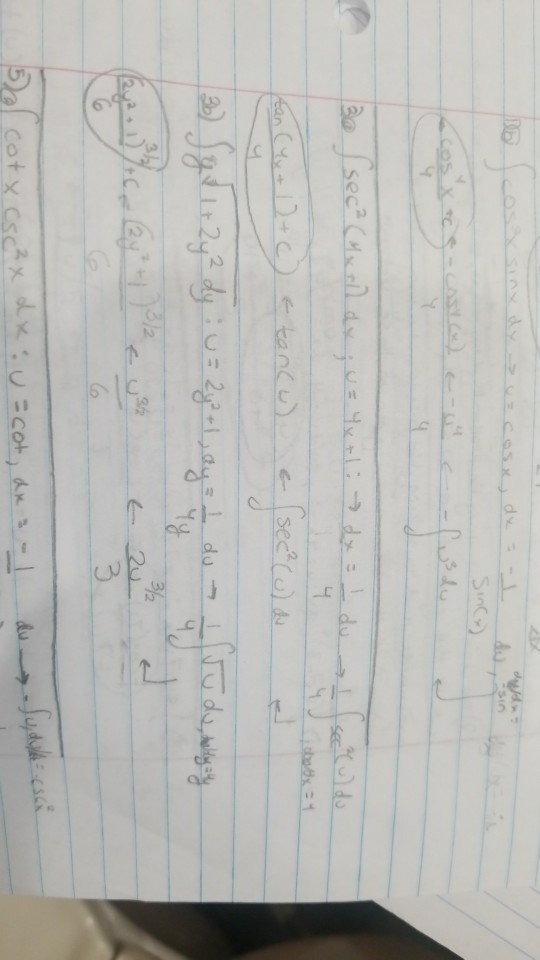 ∫cos³x sinx dx → u = cosx, dx = -1/sin(x) du,
-cos⁴x/4 + c ← -cos⁴(x)/4 ← -u⁴/4 ← -∫u³ du ↵
3a) ∫sec²(4x+1) dx ; u = 4x+1 : → dx = 1/4 du → 1/4 ∫sec²(u) du
tan(4x+1)/4 + C ← tan(u) ← ∫sec²(u) du ↵
3b) ∫y√1+2y² dy : u = 2y²+1, dy = 1/4y du → 1/4 ∫√u du,
(2y²+1)^3/2/6 + C ← (2y²+1)^3/2/6 ← u^3/2/6 ← 2u^3/2/3 ↵
5)a) ∫cotx csc²x dx : u = cot, dx = -1 du → -∫u